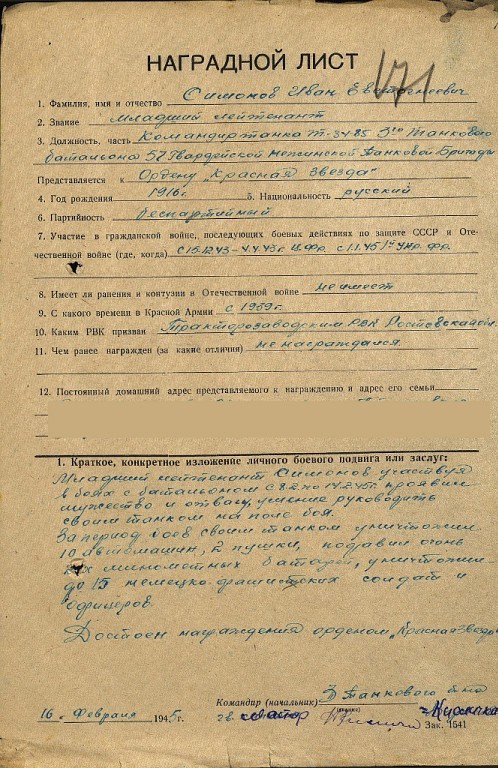 НАГРАДНОЙ ЛИСТ
171
1. Фамилия, имя и отчество Симонов Иван
2. Звание Младший лейтенант
3. Должность, часть Командир танка Т-34-85 3го Танкового
батальона 57 Гвардейской Танковой Бригады
Представляется к Ордену „Красная Звезда"
4. Год рождения 1916г. 5. Национальность русский
6. Партийность беспартийный
7. Участие в гражданской войне, последующих боевых действиях по защите СССР и Оте-
чественной войне (где, когда) Ц.Фр. с 1.1.45г. 1й Укр. фр.
8. Имеет ли ранения и контузии в Отечественной войне не имеет
9. С какого времени в Красной Армии с 1939г.
10. Каким РВК призван Тракторозаводским РВК
11. Чем ранее награжден (за какие отличия) не награждался
12. Постоянный домашний адрес представляемого к награждению и адрес его семьи
1. Краткое, конкретное изложение личного боевого подвига или заслуг:
Младший лейтенант Симонов участвуя
в боях с батальоном с 8.2. по 14.2.45г. проявил
мужество и отвагу, умение руководить
своим танком на поле боя.
За период боев своим танком уничтожил
10 автомашин, 2 пушки, подавил огонь
2-х минометных батарей, уничтожил
до 15 немецко-фашистских солдат и
офицеров.
Достоен награждения орденом „Красная Звезда"
Командир (начальник) 3 Танкового б-на
16 „ Февраля 1945г. гв. майор
Зак. 1541